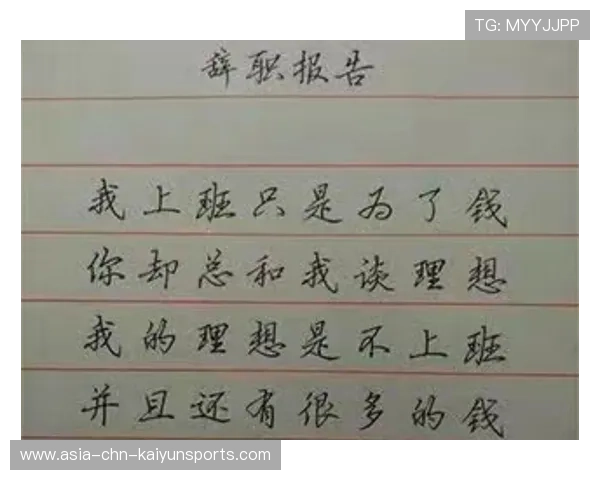 TG: MYYJJPP
辞职报告
我上班只是为了钱
你却总和我谈理想
我的理想是不上班
并且还有很多的钱
www.asia-chn-kaiyunsports.com